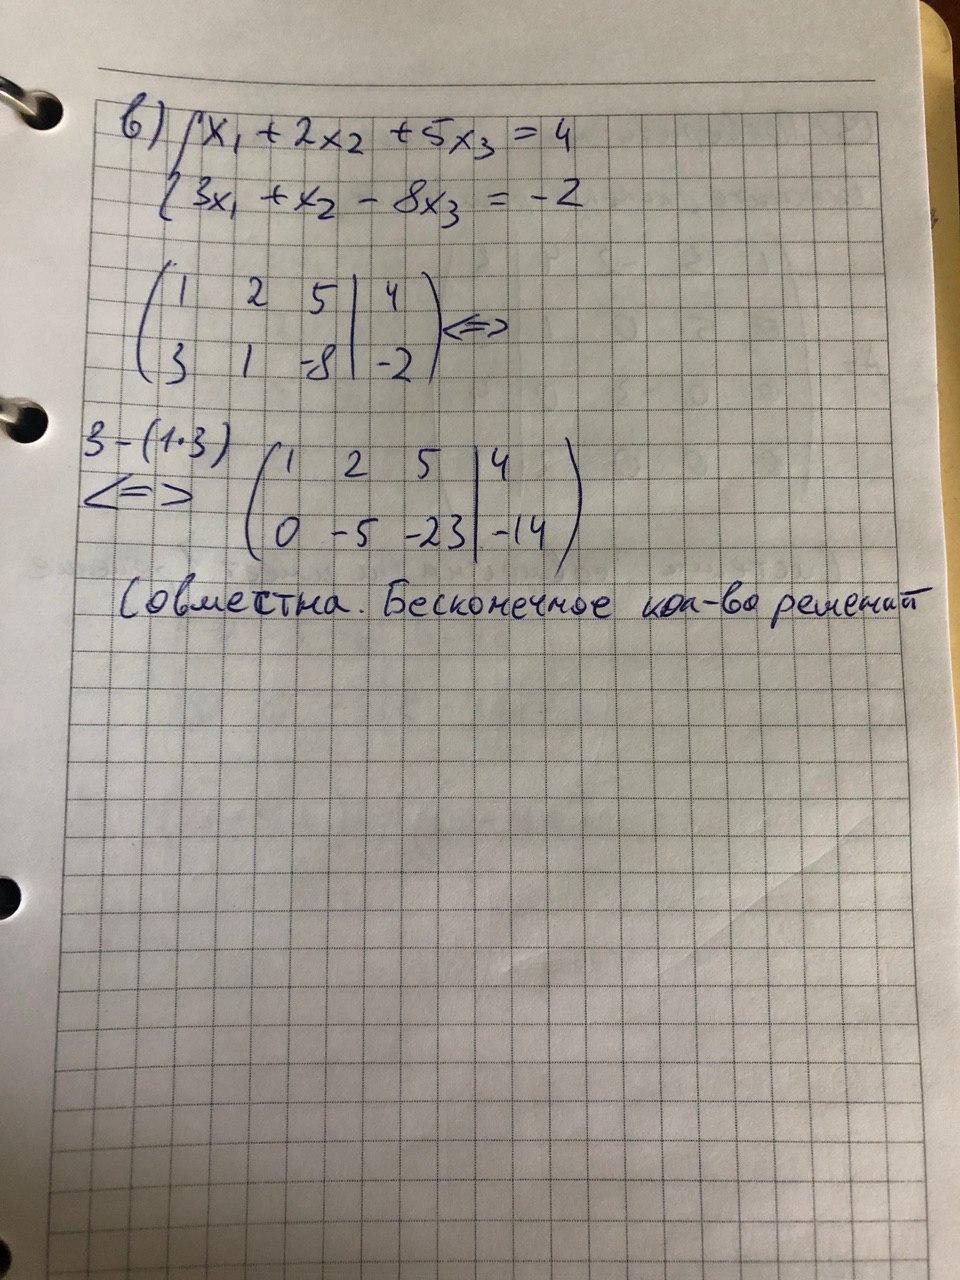 в) { x₁ + 2x₂ + 5x₃ = 4
3x₁ + x₂ - 8x₃ = -2
( 1 2 5 | 4 ) <=>
3 1 -8 | -2
3-(1·3) ( 1 2 5 | 4 )
<=> 0 -5 -23 | -14
Совместна. Бесконечное кол-во решений